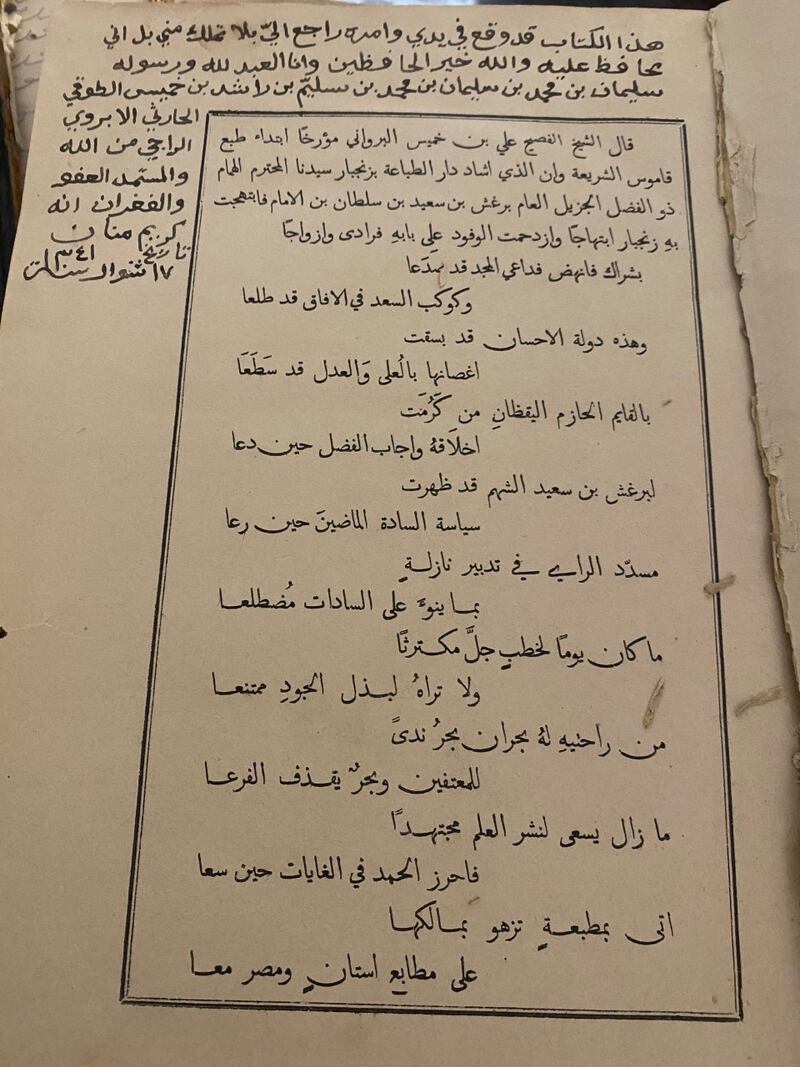 هذا الكتاب قد وقع في يدي وامره راجع اليّ بلا تملك مني بل اني
محافظ عليه والله خير الحافظين وانا العبد لله ورسوله
سليمان بن محمد بن سليمان بن محمد بن سليّم بن راشد بن خميس الطوقي
الحارثي الابروي
الراجي من الله
والمستمد العفو
والغفران انه
كريم منان
تاريخ
١٧ شوال سنة ١٣٤١
قال الشيخ الفصيح علي بن خميس البرواني مؤرخًا ابتداء طبع
قاموس الشريعة وان الذي اشاد دار الطباعة بزنجبار سيدنا المحترم الهمام
ذو الفضل الجزيل العام برغش بن سعيد بن سلطان بن الامام فابتهجت
بهِ زنجبار ابتهاجًا وازدحمت الوفود على بابهِ فرادى وازواجًا
بشراك فانهض فداعي المجد قد صدَعا
وكوكب السعد في الافاق قد طلعا
وهذه دولة الاحسان قد بسقت
اغصانها بالُعلى وَالعدل قد سَطَعَا
بالقايم الحازم اليقظانِ من كَرُمَت
اخلاقهُ واجاب الفضل حين دعا
لبرغش بن سعيد الشهم قد ظهرت
سياسة السادة الماضينَ حين رعا
مسدّد الراي في تدبير نازلةٍ
بما ينوءُ على السادات مُضطلعا
ما كان يومًا لخطبٍ جلَّ مكترثًا
ولا تراهُ لبذل الجودِ ممتنعا
من راحتيهِ لهُ بحران بحرُ ندىً
للمعتفين وبحرٌ يقذف الفرعا
ما زال يسعى لنشر العلم مجتهدًا
فاحرز الحمد في الغايات حين سعا
اتى بمطبعةٍ تزهو بمالكها
على مطابع استانٍ ومصر معا